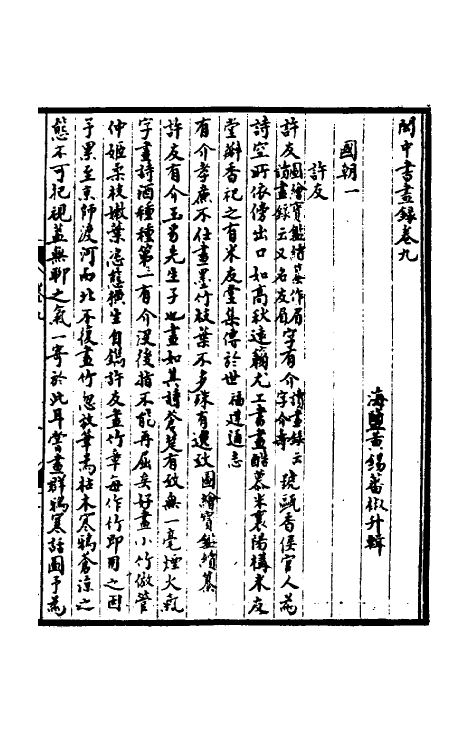 閩中書畫錄卷九
海鹽黃錫蕃椒升輯
國朝一
許友
許友圖繪寶鑑續纂作眉讀畫錄云又名友眉字有介讀畫錄云字介壽號甌香侯官人為
詩空所依傍出口如高秋遠籟尤工書畫酷慕米襄陽構米友
堂辦香祀之有米友堂集傳於世福建通志
有介孝廉不仕畫墨竹枝葉不多殊有逸致圖繪寶鑑續纂
許友有介玉史先生子也畫如其詩蒼楚有致無一毫煙火氣
字畫詩酒種種第一有介沒後指不能再屈矣好畫小竹倣管
仲姬柔枝嫩葉恣態橫生自鐫許友畫竹章每作竹即用之因
予累至京師渡河而北不復畫竹忽放筆為枯木寒鴉蒼涼之
態不可把視蓋無聊之氣一寄於此耳嘗畫群鴉寒話圖予為